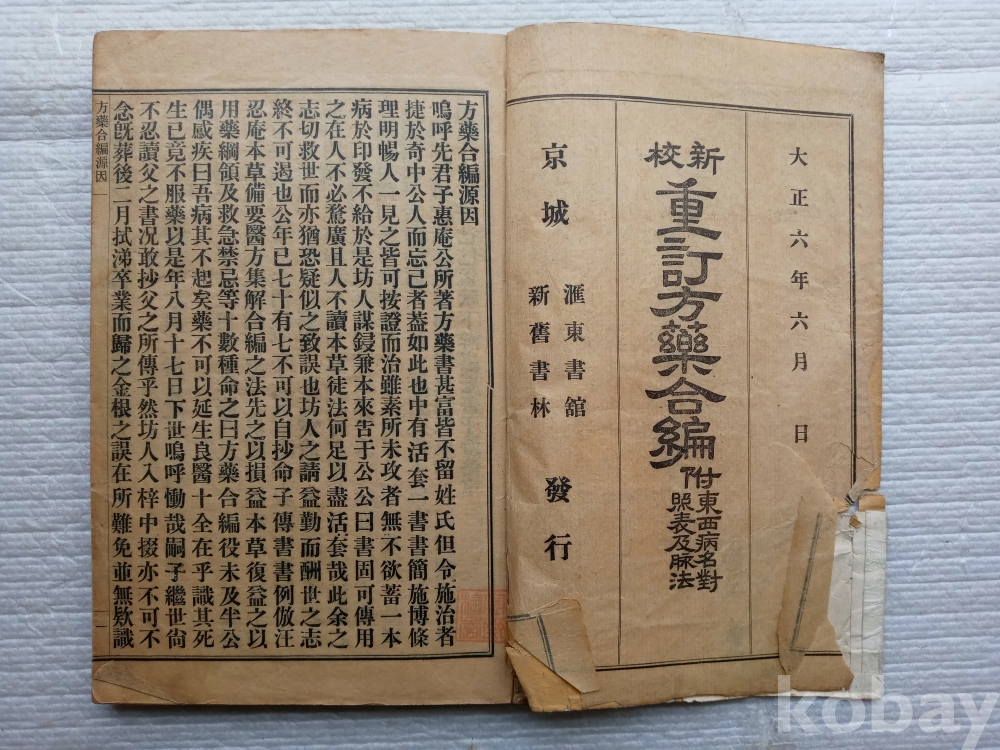 大正六年六月 日
新校
重訂方藥合編
附東西病名對
照表及脉法
京城
滙東書舘
新舊書林
發行
方藥合編源因
嗚呼先君子惠庵公所著方藥書甚富皆不留姓氏但令施治者
捷於奇中公人而忘己者葢如此也中有活套一書書簡施博條
理明暢人一見之皆可按證而治雖素所未攻者無不欲蓄一本
病於印發不給於是坊人謀鋟兼本來告于公公曰書固可傳用
之在人不必騖廣且人不讀本草徒法何足以盡活套哉此余之
志切救世而亦猶恐疑似之致誤也坊人之請益勤而酬世之志
終不可遏也公年已七十有七不可以自抄命子傳書書例倣汪
忍庵本草備要醫方集解合編之法先之以損益本草復益之以
用藥綱領及救急禁忌等十數種命之曰方藥合編役未及半公
偶感疾曰吾病其不起矣藥不可以延生良醫十全在乎識其死
生已竟不服藥以是年八月十七日下世嗚呼慟哉嗣子繼世尙
不忍讀父之書况敢抄父之所傳乎然坊人入梓中掇亦不可不
念旣葬後二月拭涕卒業而歸之金根之誤在所難免並無欵識
方藥合編源因
一
kobay